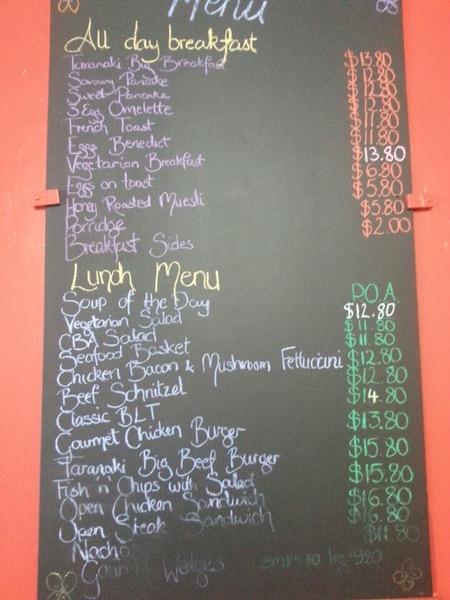 Menu
All day breakfast
Taranaki Big Breakfast $13.80
Savoury Pancake $12.80
Sweet Pancake $12.80
3 Egg Omelette $12.80
French Toast $11.80
Eggs Benedict $11.80
Vegetarian Breakfast 13.80
Eggs on toast $6.80
Honey Roasted Muesli $5.80
Porridge $5.80
Breakfast Sides $2.00
Lunch Menu
Soup of the Day P.O.A.
Vegetarian Salad $12.80
CBA Salad $11.80
Seafood Basket $11.80
Chicken Bacon & Mushroom Fettuciani $12.80
Beef Schnitzel $12.80
Classic BLT $14.80
Gourmet Chicken Burger $13.80
Taranaki Big Beef Burger $15.80
Fish 'n' Chips with Salad $15.80
Open Chicken Sandwich $16.80
Open Steak Sandwich $16.80
Nachos $11.80
Gourmet Wedges sm $5.80 lrg 9.80